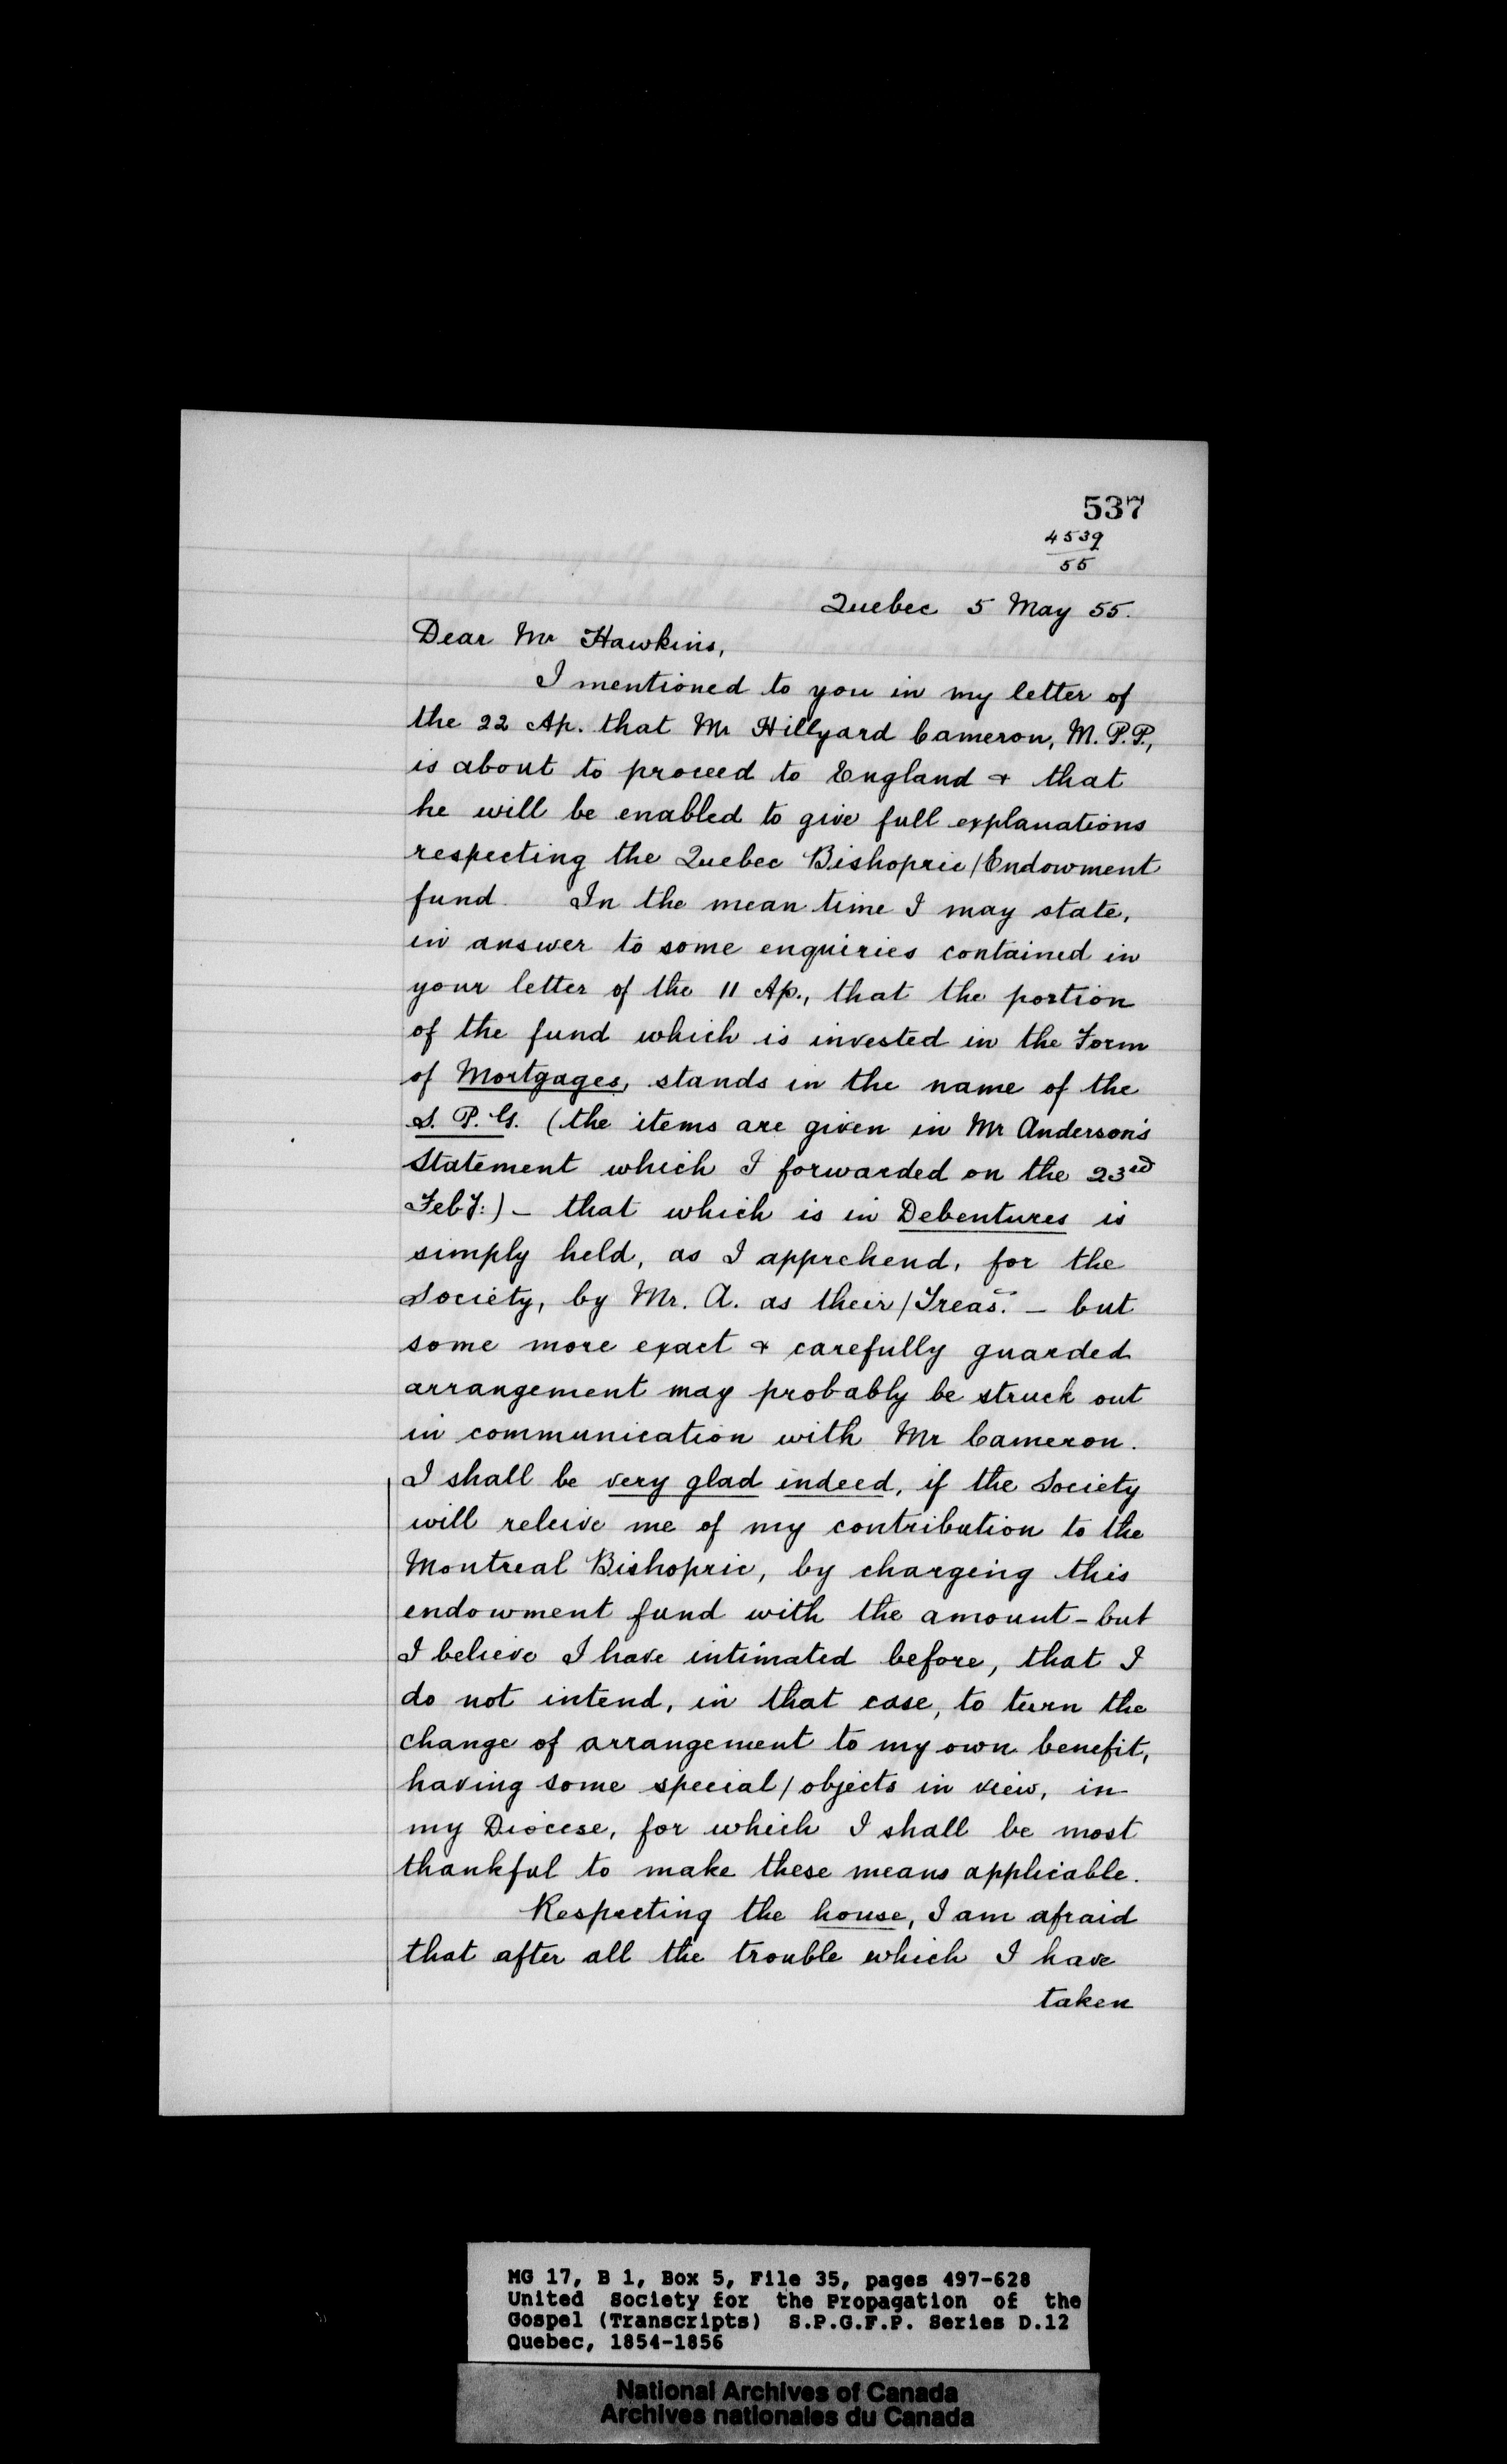 537
4539
55
Quebec 5 May 55.
Dear Mr Hawkins,
I mentioned to you in my letter of
the 22 Ap. that Mr Hillyard Cameron, M.P.P.,
is about to proceed to England & that
he will be enabled to give full explanations
respecting the Quebec Bishopric/Endowment
fund. In the mean time I may state,
in answer to some enquiries contained in
your letter of the 11 Ap., that the portion
of the fund which is invested in the Form
of Mortgages, stands in the name of the
S. P. G. (the items are given in Mr Anderson's
Statement which I forwarded on the 23rd
Feby:) - that which is in Debentures is
simply held, as I apprehend, for the
Society, by Mr. A. as their/Treas. - but
some more exact & carefully guarded
arrangement may probably be struck out
in communication with Mr Cameron.
I shall be very glad indeed, if the Society
will releive me of my contribution to the
Montreal Bishopric, by charging this
endowment fund with the amount - but
I believe I have intimated before, that I
do not intend, in that case, to turn the
change of arrangement to my own benefit,
having some special/objects in view, in
my Diocese, for which I shall be most
thankful to make these means applicable.
Respecting the house, I am afraid
that after all the trouble which I have
taken
MG 17, B 1, Box 5, File 35, pages 497-628
United Society for the Propagation of the
Gospel (Transcripts) S.P.G.F.P. Series D.12
Quebec, 1854-1856
National Archives of Canada
Archives nationales du Canada